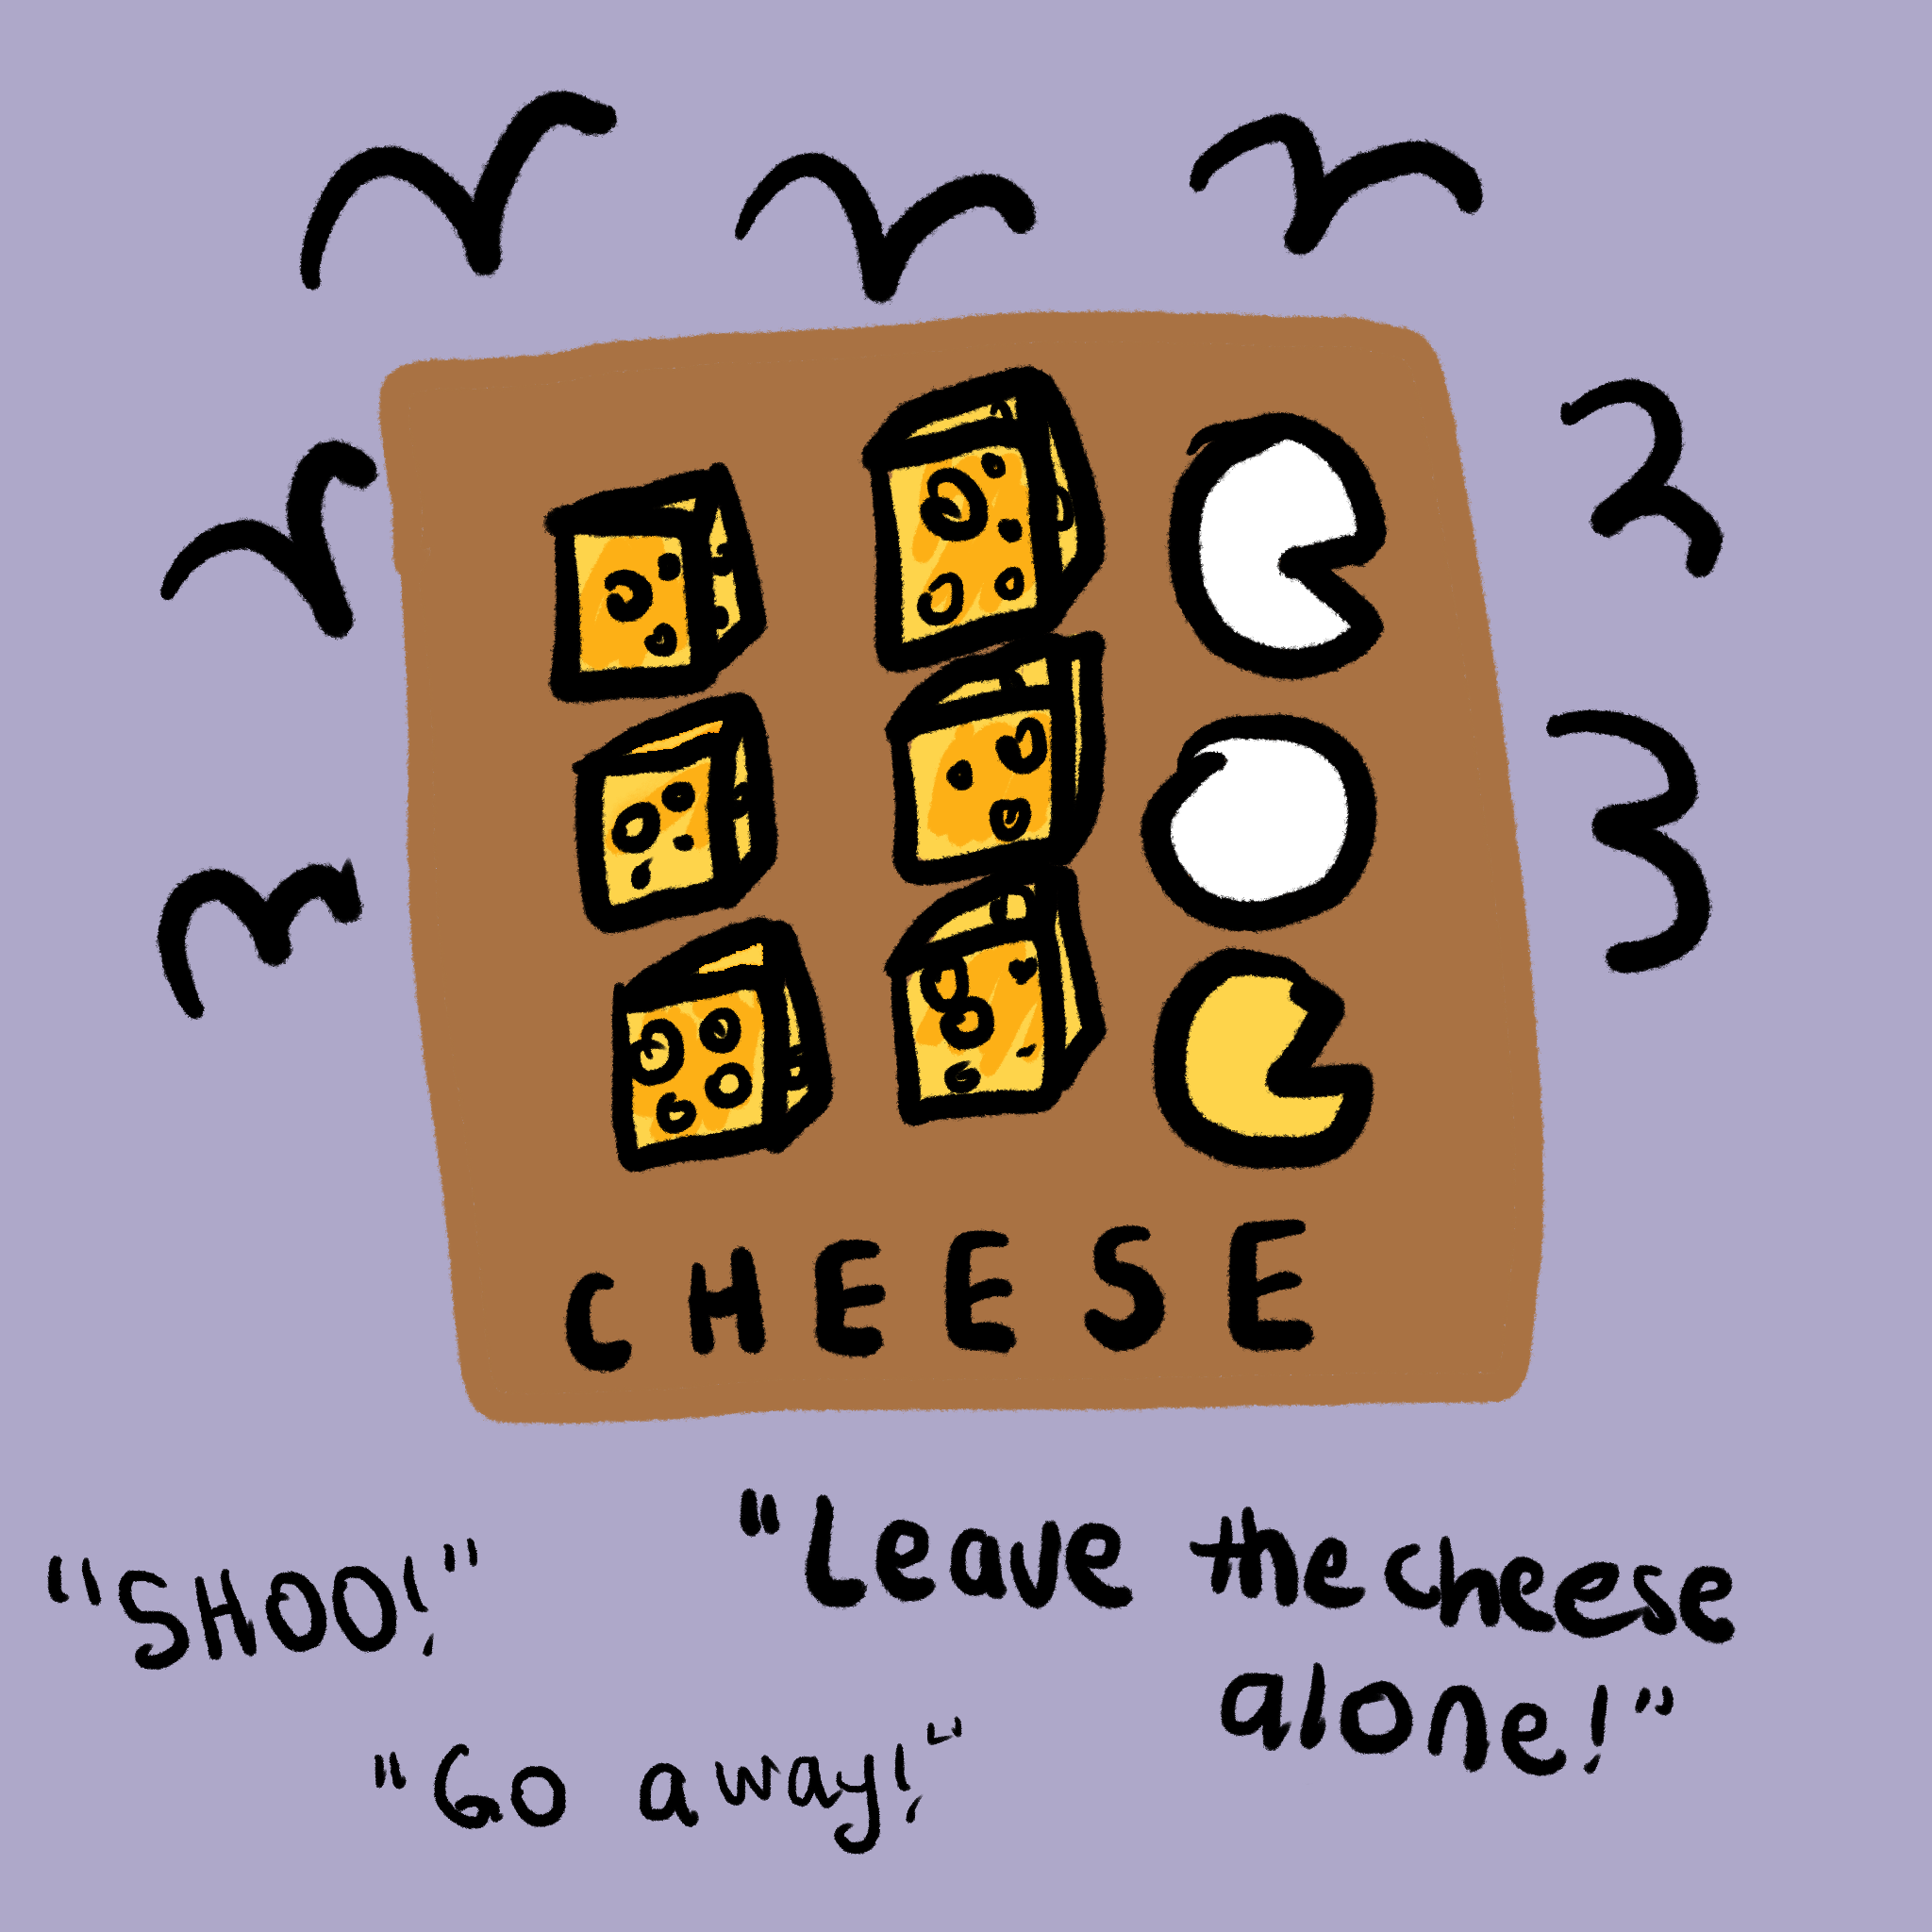 CHEESE
"SHOO!"
"Leave the cheese
alone!"
"Go away!"